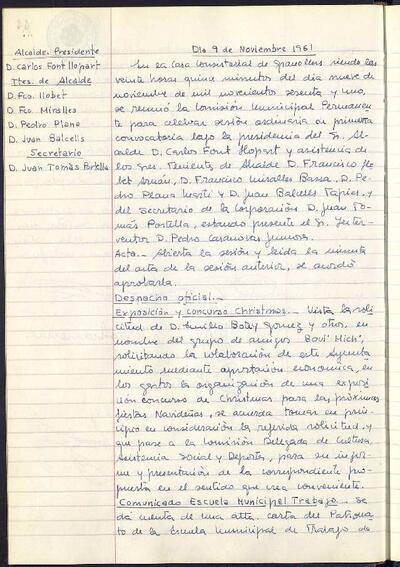 Alcalde-Presidente
D. Carlos Font Llopart
Ttes. de Alcalde
D. Fco. Llobet
D. Fco. Miralles
D. Pedro Plana
D. Juan Balcells
Secretario
D. Juan Tomás Portella
Día 9 de Noviembre 1961
En la Casa Consistorial de Granollers siendo las
veinte horas quince minutos del día nueve de
noviembre de mil novecientos sesenta y uno,
se reunió la Comisión Municipal Permanen
te para celebrar sesión ordinaria en primera
convocatoria bajo la presidencia del Sr. Al-
calde D. Carlos Font Llopart y asistencia de
los Sres. Teniente de Alcalde D. Francisco Llo
bet Arnán, D. Francisco Miralles Bassa, D. Pe-
dro Plana Martí y D. Juan Balcells Tapies, y
del Secretario de la Corporación D. Juan To-
más Portella, estando presente el Sr. Inter-
ventor D. Pedro Casanovas
Acta.- Abierta la sesión y leída la minuta
del acta de la sesión anterior, se acordó
aprobarla.
Despacho oficial.-
Exposición y concurso Christmas.- Vista la soli
citud de D. Emilio Botey Gomez y otros, en
nombre del grupo de amigos
solicitando la colaboración de este Ayunta
miento mediante aportación económica, en
los gastos la organización de una exposi
ción concurso de Christmas para las próximas
fiestas Navideñas, se acuerda tomar en prin-
cipio en consideración la referida solicitud y
que pase a la Comisión Delegada de Cultura,
Asistencia Social y Deportes, para su infor
me y presentación de la correspondiente pro-
puesta en el sentido que crea conveniente.
Comunicado Escuela Municipal Trabajo.- Se
da cuenta de una atta. carta del Patrona
to de la Escuela Municipal de Trabajo de